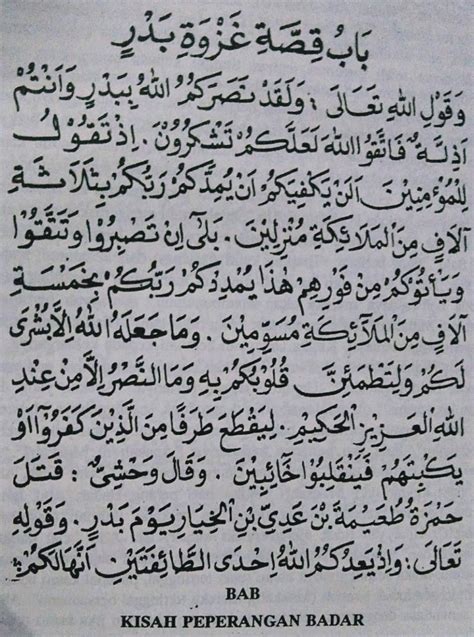 بَابُ قِصَّةِ غَزْوَةِ بَدْرٍ
وَقَوْلِ اللهِ تَعَالَى : وَلَقَدْ نَصَرَكُمُ اللهُ بِبَدْرٍ وَاَنْتُمْ
اَذِلَّةٌ فَاتَّقُوا اللهَ لَعَلَّكُمْ تَشْكُرُوْنَ . اِذْ تَقُوْلُ
لِلْمُؤْمِنِيْنَ اَلَنْ يَكْفِيَكُمْ اَنْ يُمِدَّكُمْ رَبُّكُمْ بِثَلَاثَةِ
آلَافٍ مِنَ الْمَلَائِكَةِ مُنْزَلِيْنَ . بَلَىٰ اِنْ تَصْبِرُوْا وَتَتَّقُوْا
وَيَأْتُوْكُمْ مِنْ فَوْرِهِمْ هٰذَا يُمْدِدْكُمْ رَبُّكُمْ بِخَمْسَةِ
آلَافٍ مِنَ الْمَلَآئِكَةِ مُسَوِّمِيْنَ . وَمَا جَعَلَهُ اللهُ اِلَّا بُشْرَى
لَكُمْ وَلِتَطْمَئِنَّ قُلُوْبُكُمْ بِهِ وَمَا النَّصْرُ اِلَّا مِنْ عِنْدِ
اللهِ الْعَزِيْزِ الْحَكِيْمِ . لِيَقْطَعَ طَرَفًا مِنَ الَّذِيْنَ كَفَرُوْا اَوْ
يَكْبِتَهُمْ فَيَنْقَلِبُوْا خَائِبِيْنَ . وَقَالَ وَحْشِيٌّ : قَتَلَ
حَمْزَةُ طُعَيْمَةَ بْنَ عَدِيِّ بْنِ الْخِيَارِ يَوْمَ بَدْرٍ . وَقَوْلِهِ
تَعَالَى : وَاِذْ يَعِدُكُمُ اللهُ اِحْدَى الطَّائِفَتَيْنِ اَنَّهَا لَكُمْ :
BAB
KISAH PEPERANGAN BADAR